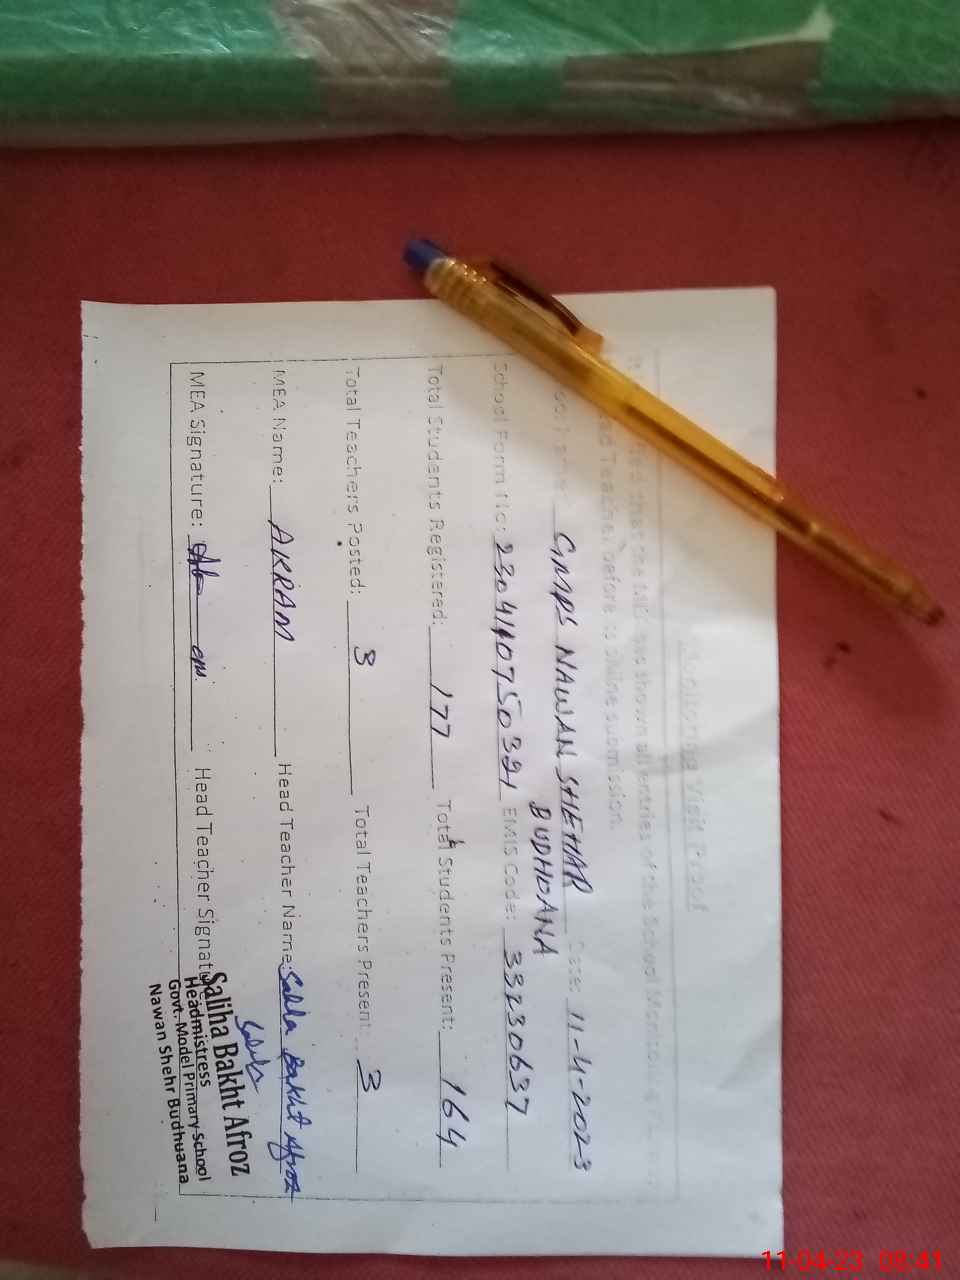 Monitoring Visit Proof
that the MEA has shown all entries of the School Monitoring
Teacher before its online submission.
GMPS NAWAN SHEHAR Date: 11-4-2023
BUDHOANA
School Form No: EMIS Code: 33230637
Total Students Registered: 177 Total Students Present: 164
Total Teachers Posted: 3 Total Teachers Present: 3
MEA Name: AKRAM Head Teacher Name: Saliha Bakht Afroz
MEA Signature: Head Teacher
Saliha Bakht Afroz
Headmistress
Govt. Model Primary School
Nawan Shehr Budhuana
11-04-23 08:41